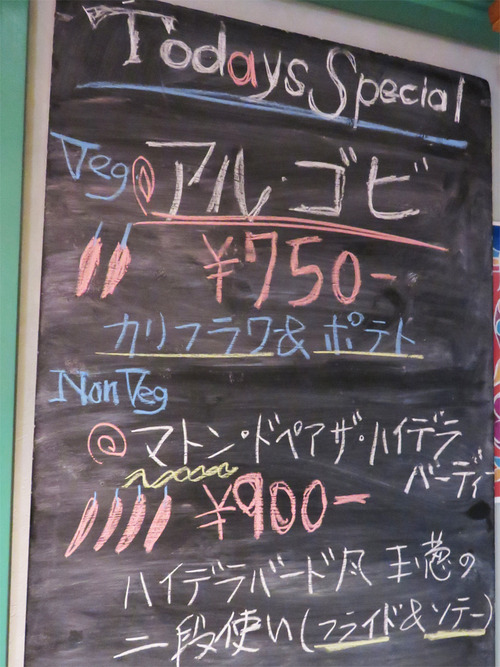 Todays Special
Veg @ アル・ゴビ
¥750-
カリフラワ&ポテト
Non Veg
@ マトン・ドペアザ・ハイデラ
バーディ
¥900-
ハイデラバード風 玉葱の
二段使い(フライド&ソテー)